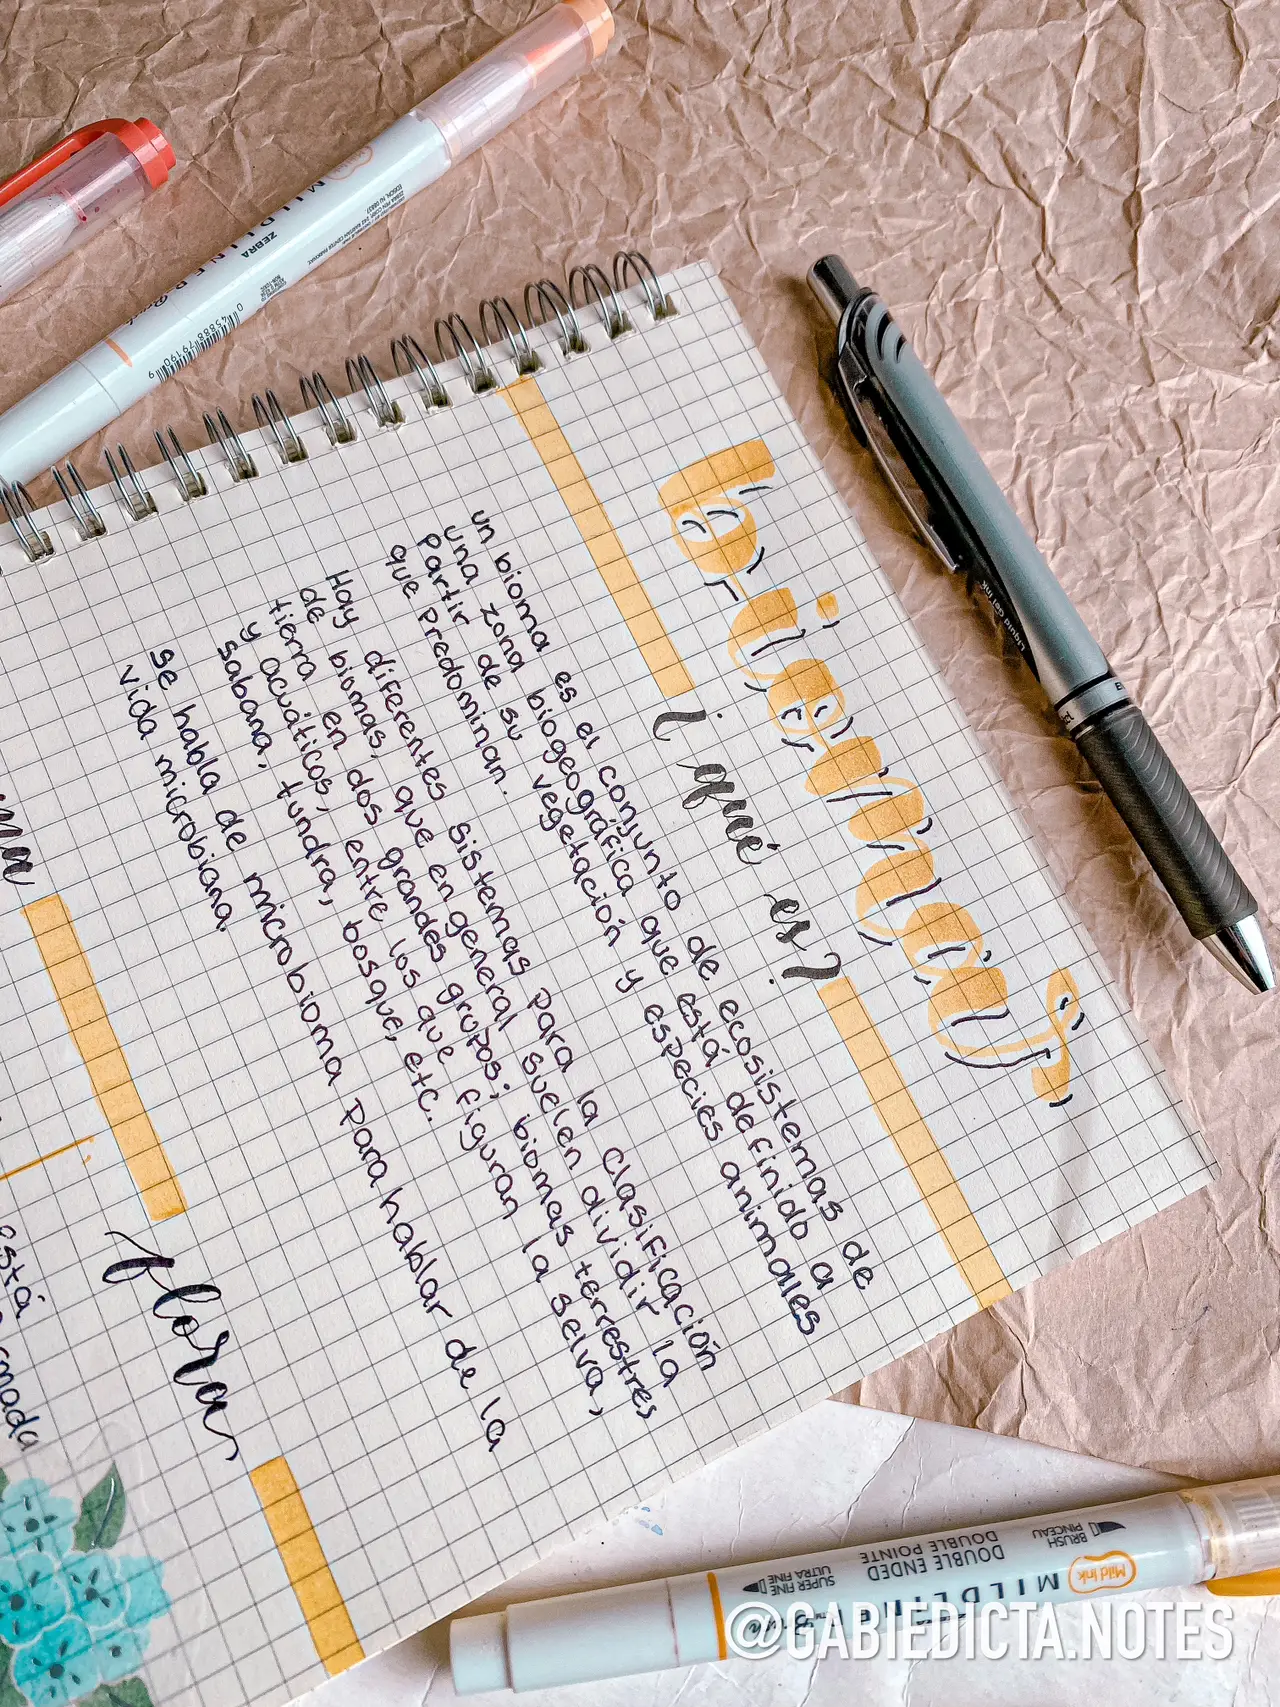 biomas
¿qué es?
un bioma es el conjunto de ecosistemas de
una zona biogeográfica que está definido a
partir de su vegetación y especies animales
que predominan.
Hay diferentes sistemas para la clasificación
de biomas, que en general suelen dividir la
tierra en dos grandes grupos; biomas terrestres
y acuáticos, entre los que figuran la selva,
sabana, tundra, bosque, etc.
se habla de microbioma para hablar de la
vida microbiana.
flora
está
ZEBRA
MILDLINER
Brush
EDISON, NJ 08837
0 45888 79190 9
Liquid Gel Ink
Mild Ink
MILDLINER
BRUSH
PINCEAU
DOUBLE ENDED
DOUBLE POINTE
SUPER FINE
ULTRA FINE
@GABIEDICTA.NOTES